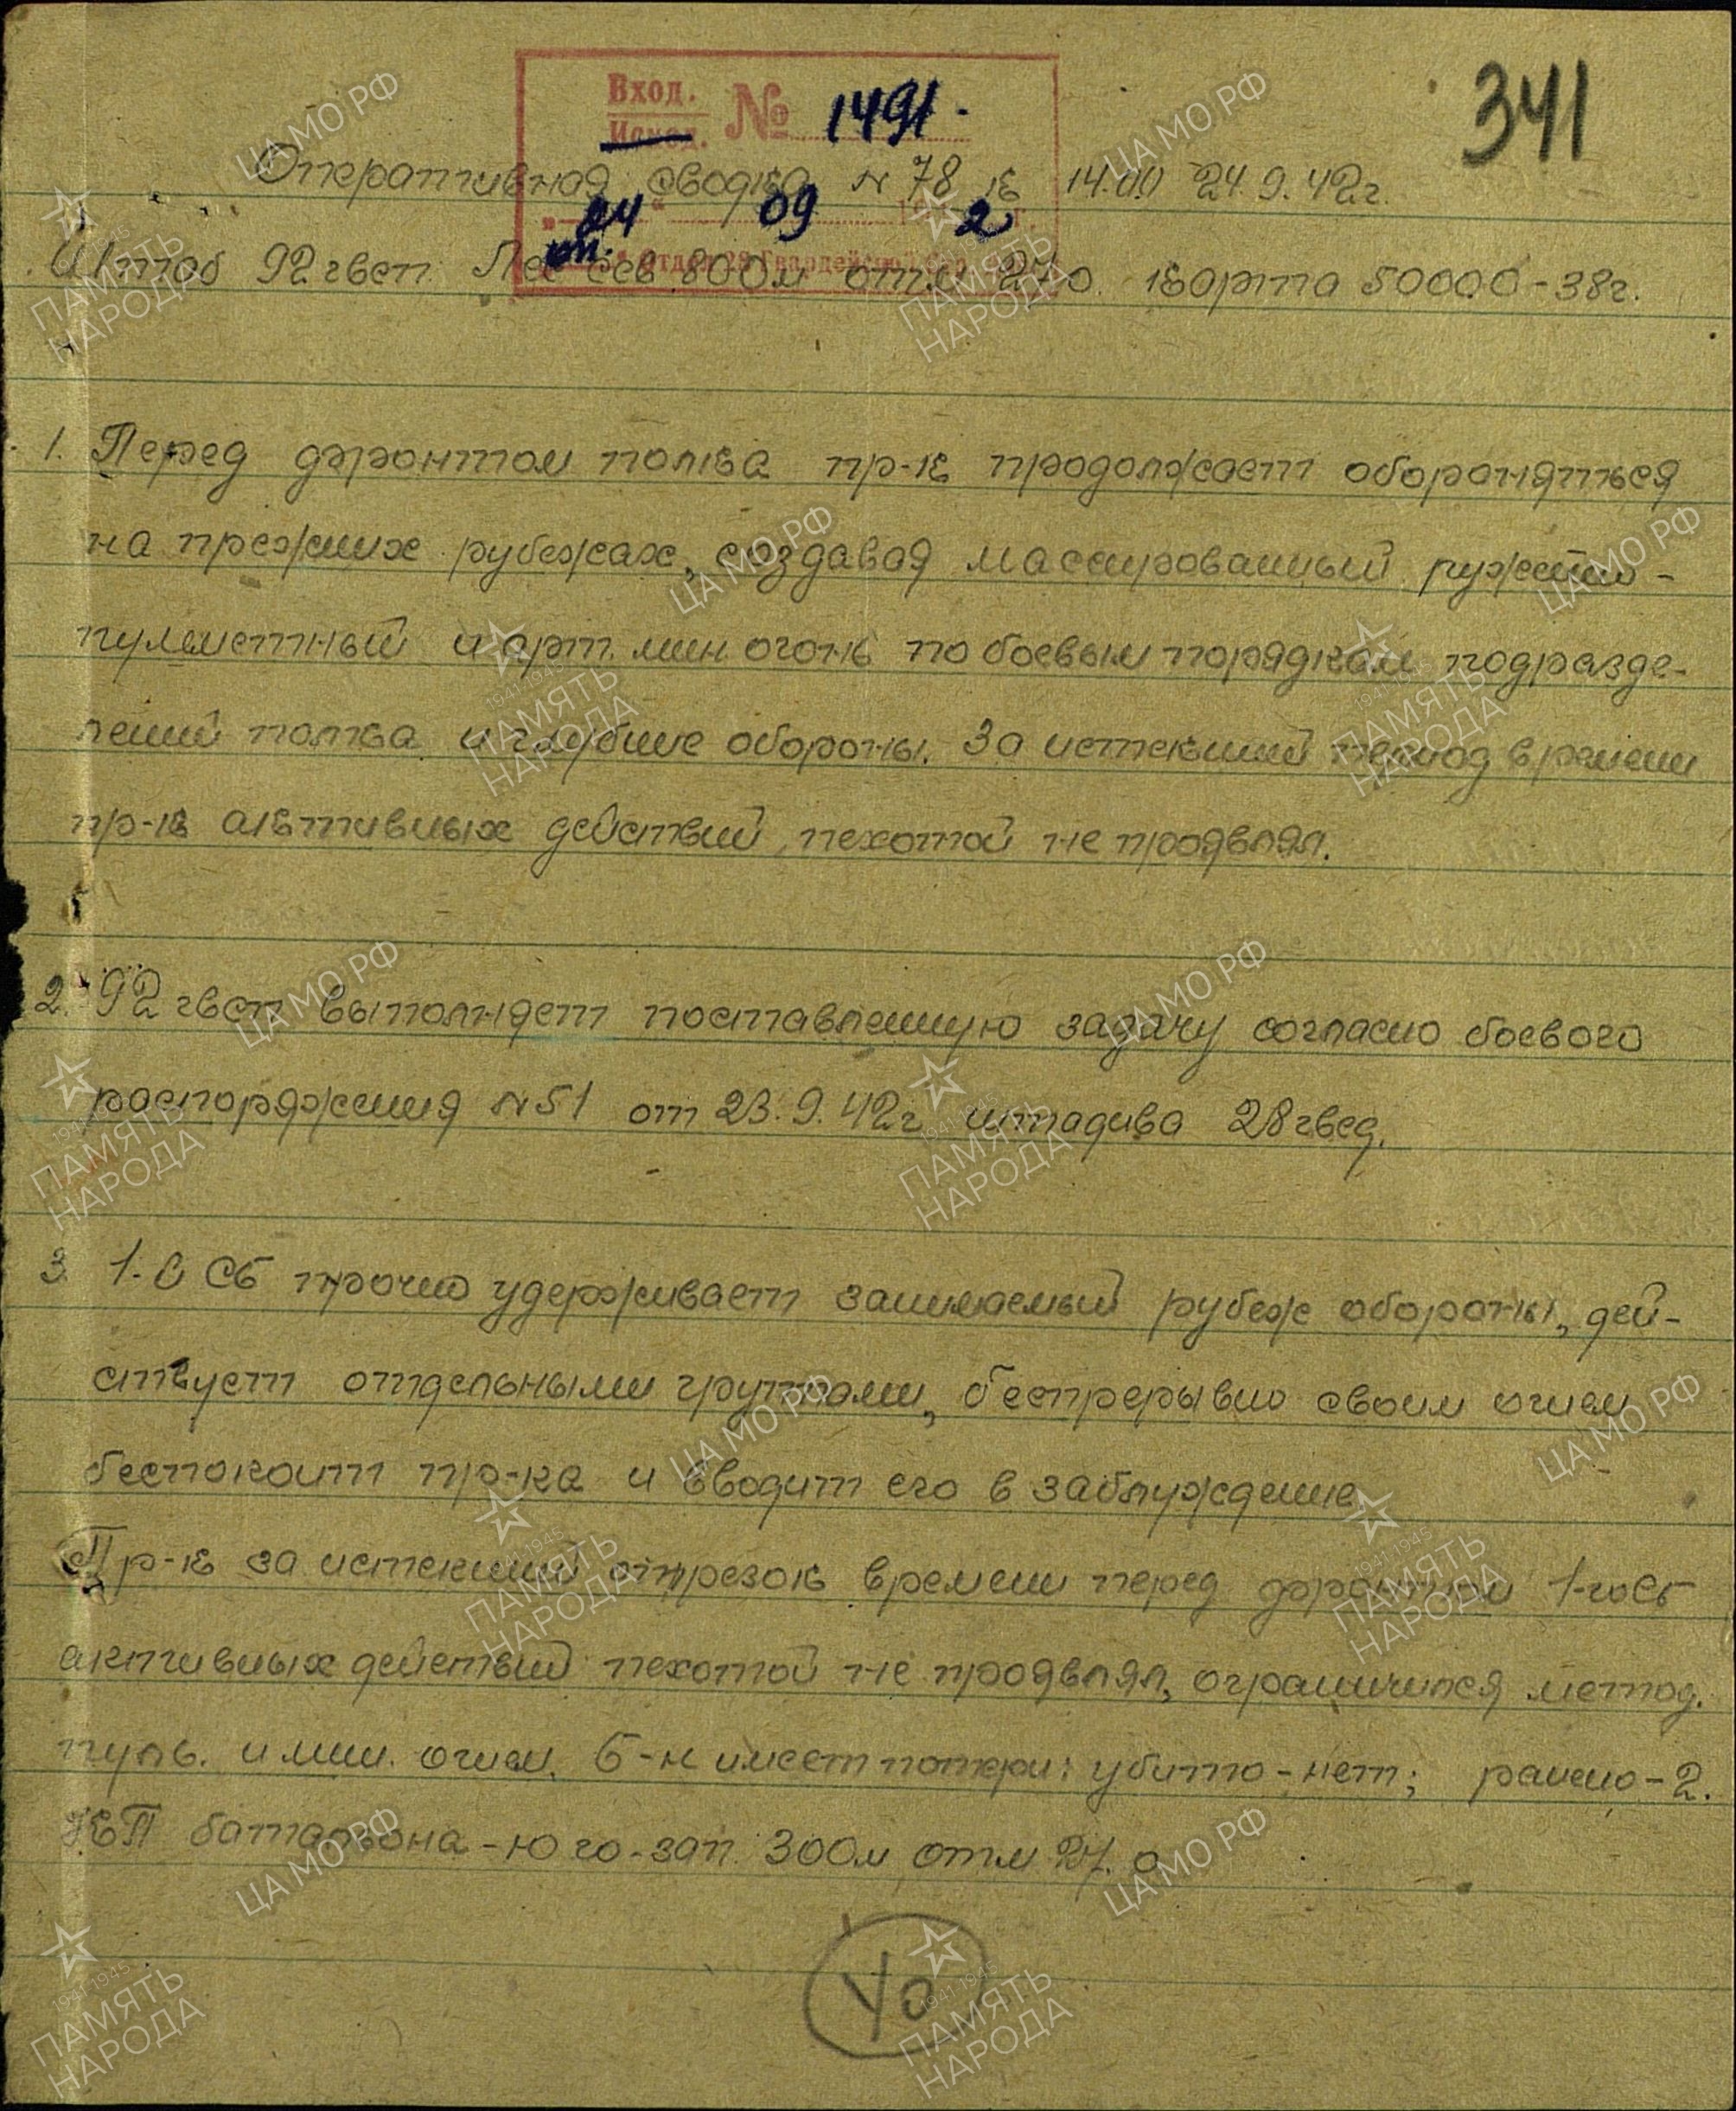 341
Вход.
Исход. № 1491.
Оперативная сводка N 78 к 14.00 24.9.42г.
24 09 2
Штаб 92 гвсп. Лес сев. 800м отм 27,0. карта 50000-38г.
1. Перед фронтом полка пр-к продолжает обороняться
на прежних рубежах, создавая массированный ружейно-
пулеметный и арт. мин. огонь по боевым порядкам подразде-
лений полка и глубине обороны. За истекший период времени
пр-к активных действий пехотой не проявлял.
2. 92 гвсп выполняет поставленную задачу согласно боевого
распоряжения N 51 от 23.9.42г штадива 28 гвсд.
3. 1-й СБ прочно удерживает занимаемый рубеж обороны, дей-
ствует отдельными группами, беспрерывно своим огнем
беспокоит пр-ка и вводит его в заблуждение
Пр-к за истекший отрезок времени перед фронтом 1-го СБ
активных действий пехотой не проявлял, ограничился метод.
пуль. и мин. огнем. Б-н имеет потери: убито-нет; ранено-2.
КП батальона - юго-зап. 300м отм 27.0
ЦАМО РФ
1941-1945
ПАМЯТЬ
НАРОДА